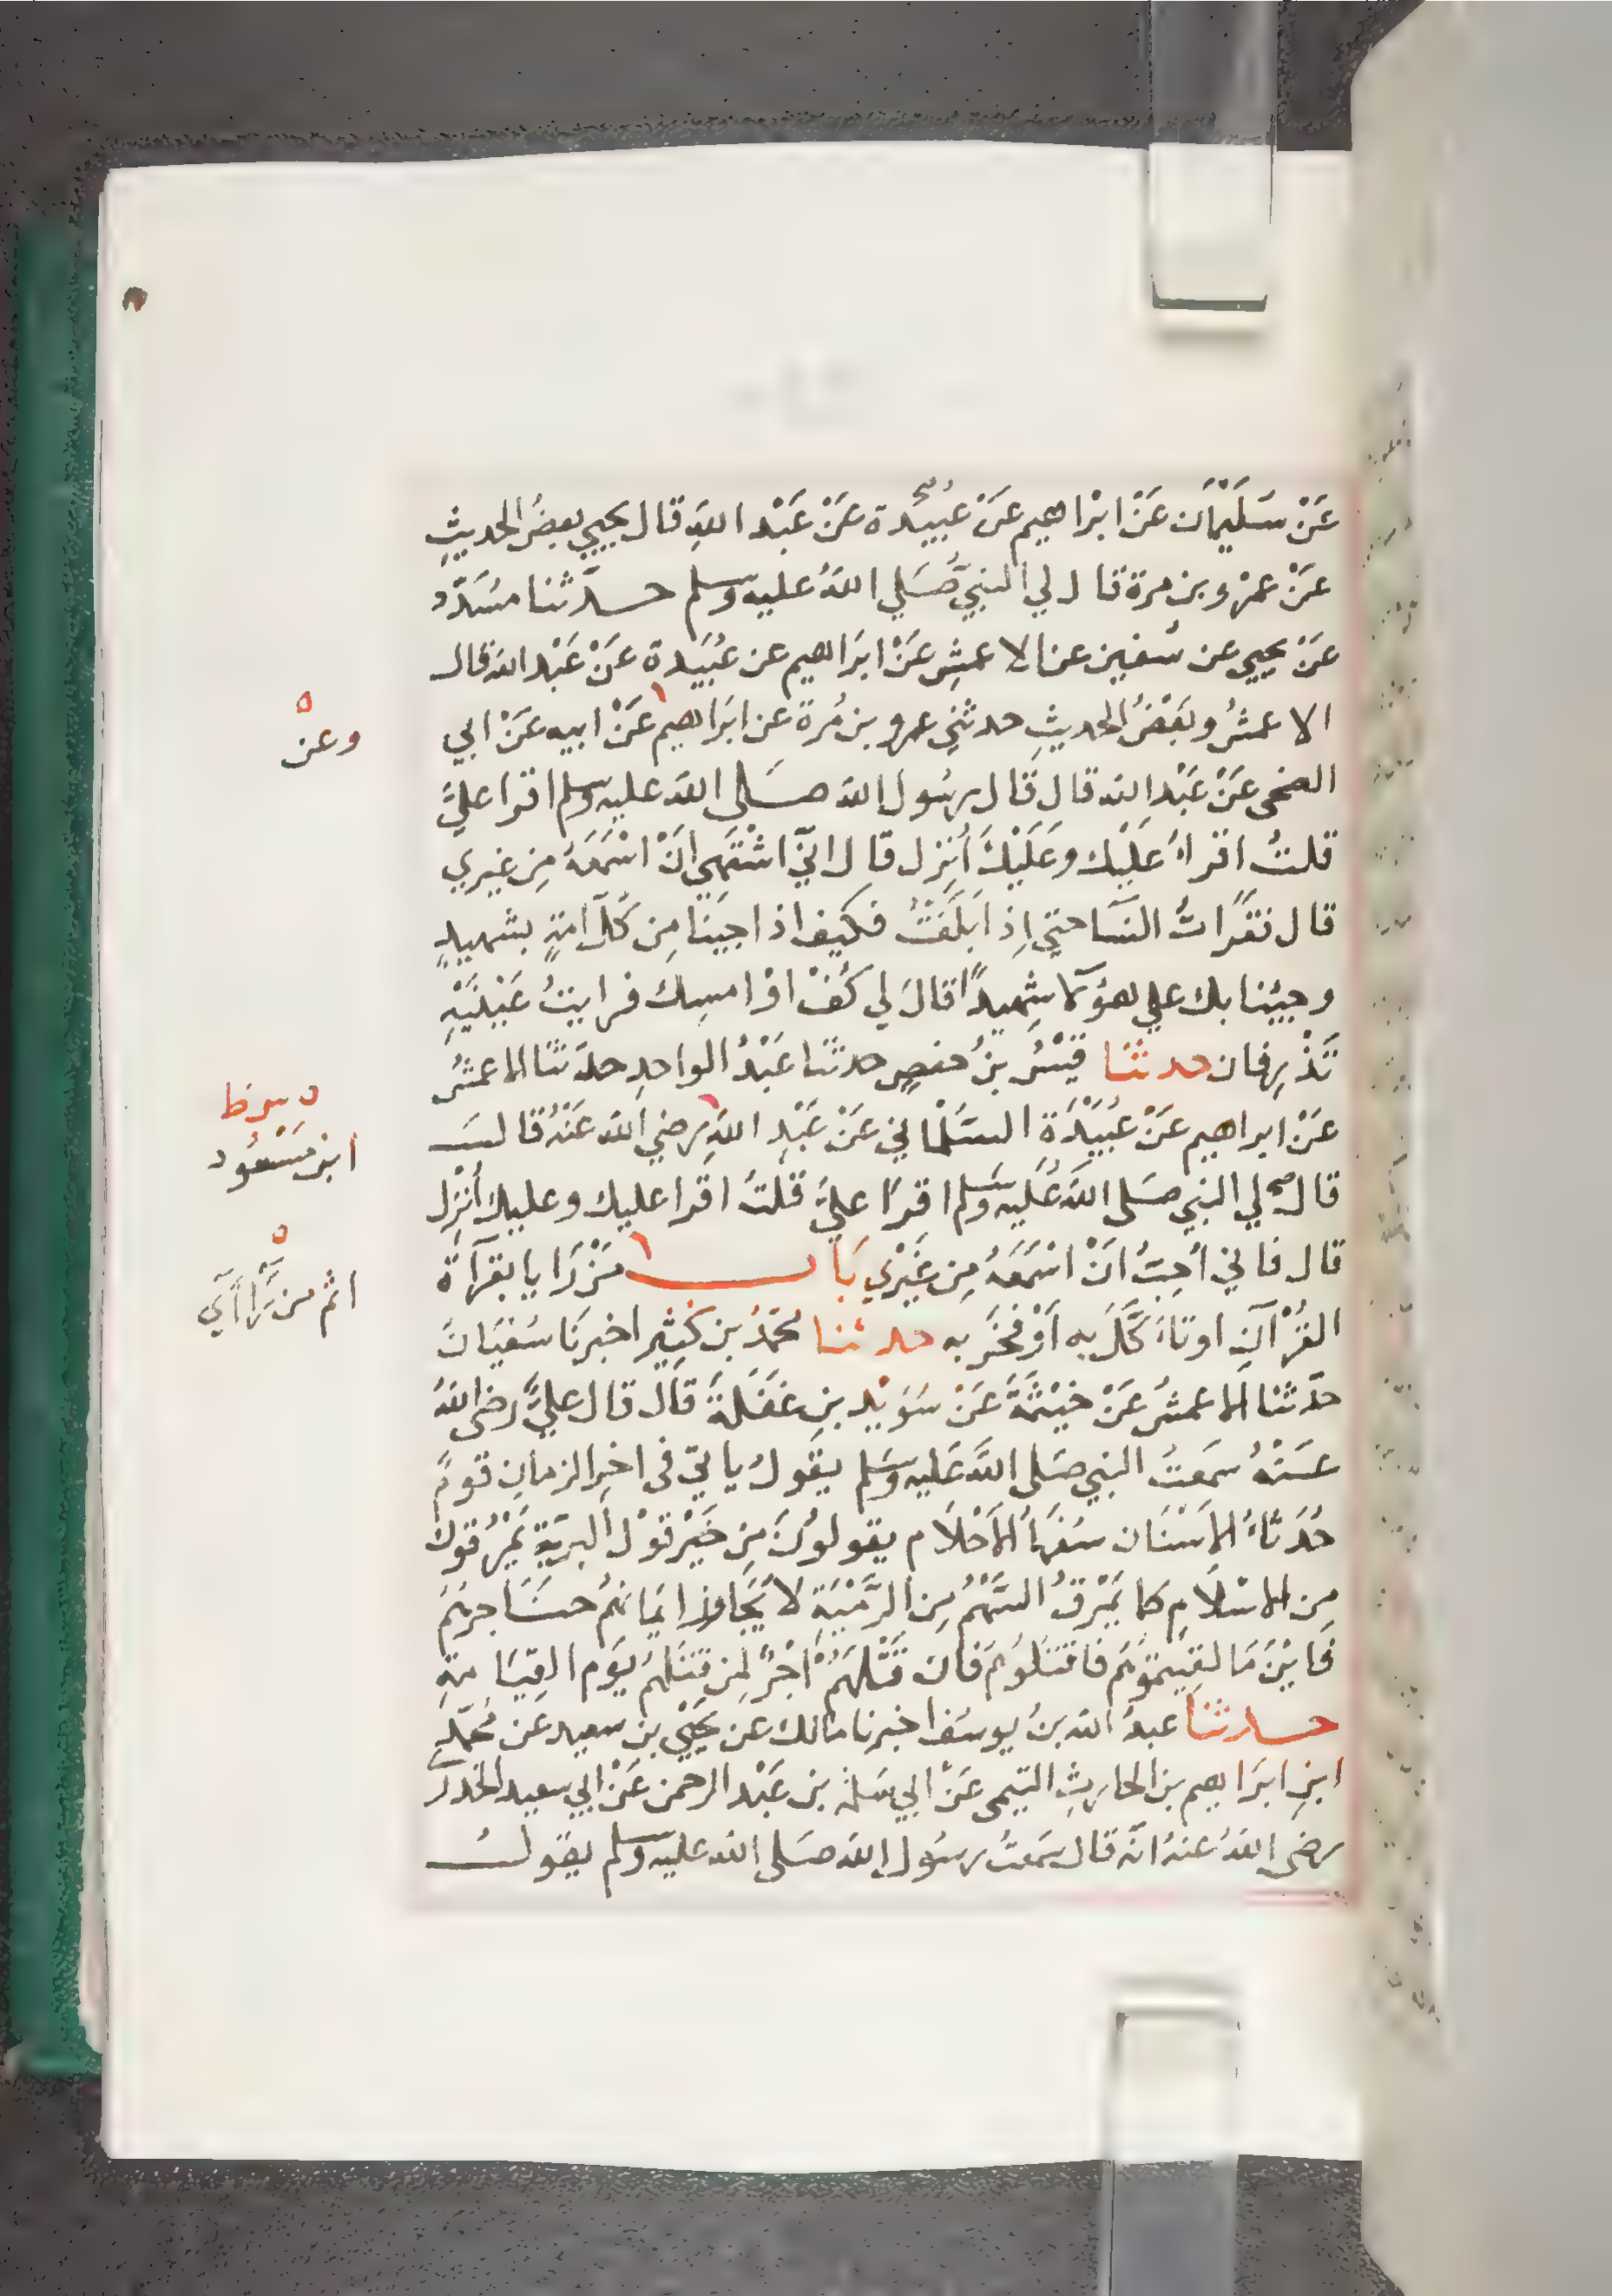 عَنْ سُلَيْمَان عَنْ ابْرَاهيم عَنْ عُبَيْدة عَنْ عَبْد اللهِ قال يحيي بعضُ الحديثِ
عَنْ عمرو بن مرة قال لي النبيُّ صَلي اللهُ عليه وسلم حدّثنا مسَدّدُ
عَنْ يحيي عن سُفين عن الاعمشِ عَنْ ابرَاهيم عن عُبَيدة عَنْ عَبْد الله قال
الاعمشُ وبَعْضُ الحديثِ حدثني عمرو بن مُرة عن ابرَاهيم عَنْ ابيه عَنْ ابي
الضحى عَنْ عَبْدِ الله قال قال رسُول الله صَلى اللهُ عليه وسلم اقرا عليَّ
قلتُ اقراُ عَلَيْك وعَلَيْكَ أنزل قال انيّ اشْتَهي انْ اسْمَعَهُ مِن غيري
قال فقرَاتُ النسَا حتي اِذا بَلَغْتُ فكيف اذا جينَا مِن كُلّ امّةٍ بشهيدٍ
وجيْنا بك علي هؤلآ شهيدًا قالَ لي كُفْ اوْ امسِك فرايتُ عَيْنَيْهِ
تَذْرِفان حدثنَا قيْسُ بنُ حفصٍ حدثنَا عَبْدُ الواحدِ حدّثنَا الاعمشُ
عَنْ ابراهيم عَنْ عُبَيْدَةَ السَّلْماني عَنْ عَبْدِ اللهِ رضي الله عَنْهُ قالَ
قال لي النبي صَلى اللهُ عَليه وسَلم اقرَا عليَّ قلتُ اقرَا عليك وعليك أُنْزِل
قال فاني اُحِبُّ انْ اسْمَعَهُ مِن غَيْري بَاب مَنْ رَايا بقرآة
القُرْآنِ او تاَكَّلَ به اَوْ فَخَرَ به حدثنا محمّدُ بن كثير اخبرنَا سُفيَانَ
حدّثنا الاعمشُ عَنْ خيْثَمَةَ عَنْ سُوَيْد بنِ غَفَلَةَ قالَ قال عليٌّ رضى اللهُ
عَنهُ سمَعتُ النبي صَلى اللهُ عَليه وسَلم يقولُ ياتي فى اخرِ الزمانِ قومٌ
حُدَثاءُ الاَسْنَان سُفهَاُ الاَحْلَام يقولونَ مِن خَيْر قوْل البريّةِ يَمْرُقونَ
مِن الاسْلَامِ كما يَمْرقُ السَّهْمُ مِن الرَّمْيَةِ لَا يُجَاوز ايمَانهُمْ حنَاجرهُمْ
فاَيْنَمَا لقيتمُوهُم فاقتلُوهُمْ فان قَتْلَهُمْ اَجْرٌ لمَن قتلهُمْ يوَم القِيَامةِ
حدثنا عبدُ الله بنُ يوسُف اخبرنا مالك عن يَحْيَي بن سعيد عن محمّدِ
ابنِ ابرَاهيم بن الحارثِ التيمى عَنْ ابي سَلمة بن عَبْد الرحمن عَنْ ابي سعيد الخدرى
رضى اللهُ عنهُ انّه قال سَمعتُ رسُول الله صَلى الله عليه وسلم يقولُ
ه
وعن
ابن مَسْعُود
ه
اثم من رَاآي